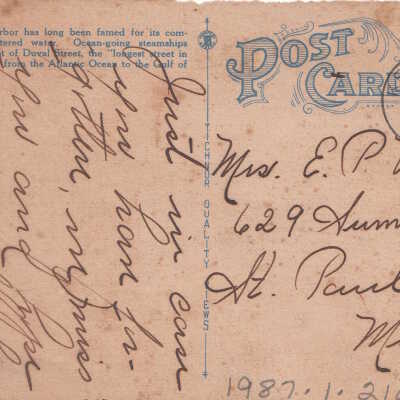 rbor has long been famed for its com-
tered water. Ocean-going steamships
t of Duval Street, the "longest street in
from the Atlantic Ocean to the Gulf of
Just in case
you have for-
gotten, my miss
you and hope
POST
CARD
TICHNOR QUALITY VIEWS
Mrs. E. P.
629 Sum
St. Paul
M
1987.1.21